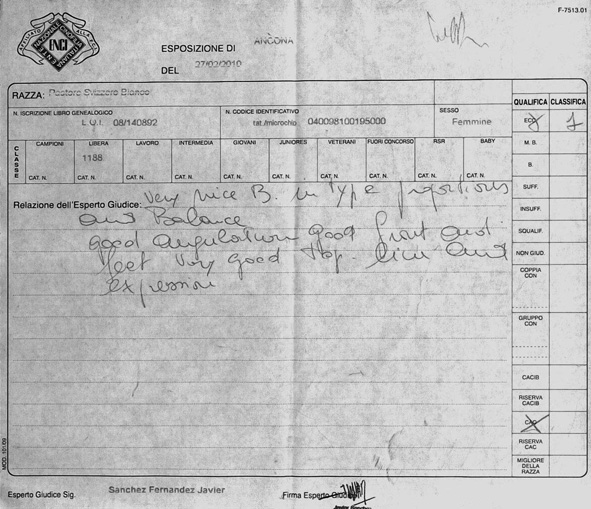 F-7513.01
AFFILIATO ALLA F.C.I.
ENCI
ESPOSIZIONE DI ANCONA
DEL 27/02/2010
RAZZA: Pastore Svizzero Bianco
QUALIFICA CLASSIFICA
N. ISCRIZIONE LIBRO GENEALOGICO N. CODICE IDENTIFICATIVO SESSO
L.O.I. 08/140892 tat./microchip 040098100195000 Femmine
ECC. 1
CLASSE
CAMPIONI LIBERA LAVORO INTERMEDIA GIOVANI JUNIORES VETERANI FUORI CONCORSO RSR BABY
1188
CAT. N. CAT. N. CAT. N. CAT. N. CAT. N. CAT. N. CAT. N. CAT. N. CAT. N. CAT. N.
M. B.
B.
SUFF.
INSUFF.
SQUALIF.
NON GIUD.
COPPIA CON
GRUPPO CON
CACIB
RISERVA CACIB
CAC
RISERVA CAC
MIGLIORE DELLA RAZZA
Relazione dell'Esperto Giudice: Very nice B. in type proportions
and Balance
good angulation good front and
feet very good top line and
expression
MOD. 101/09
Esperto Giudice Sig. Sanchez Fernandez Javier Firma Esperto Giudice